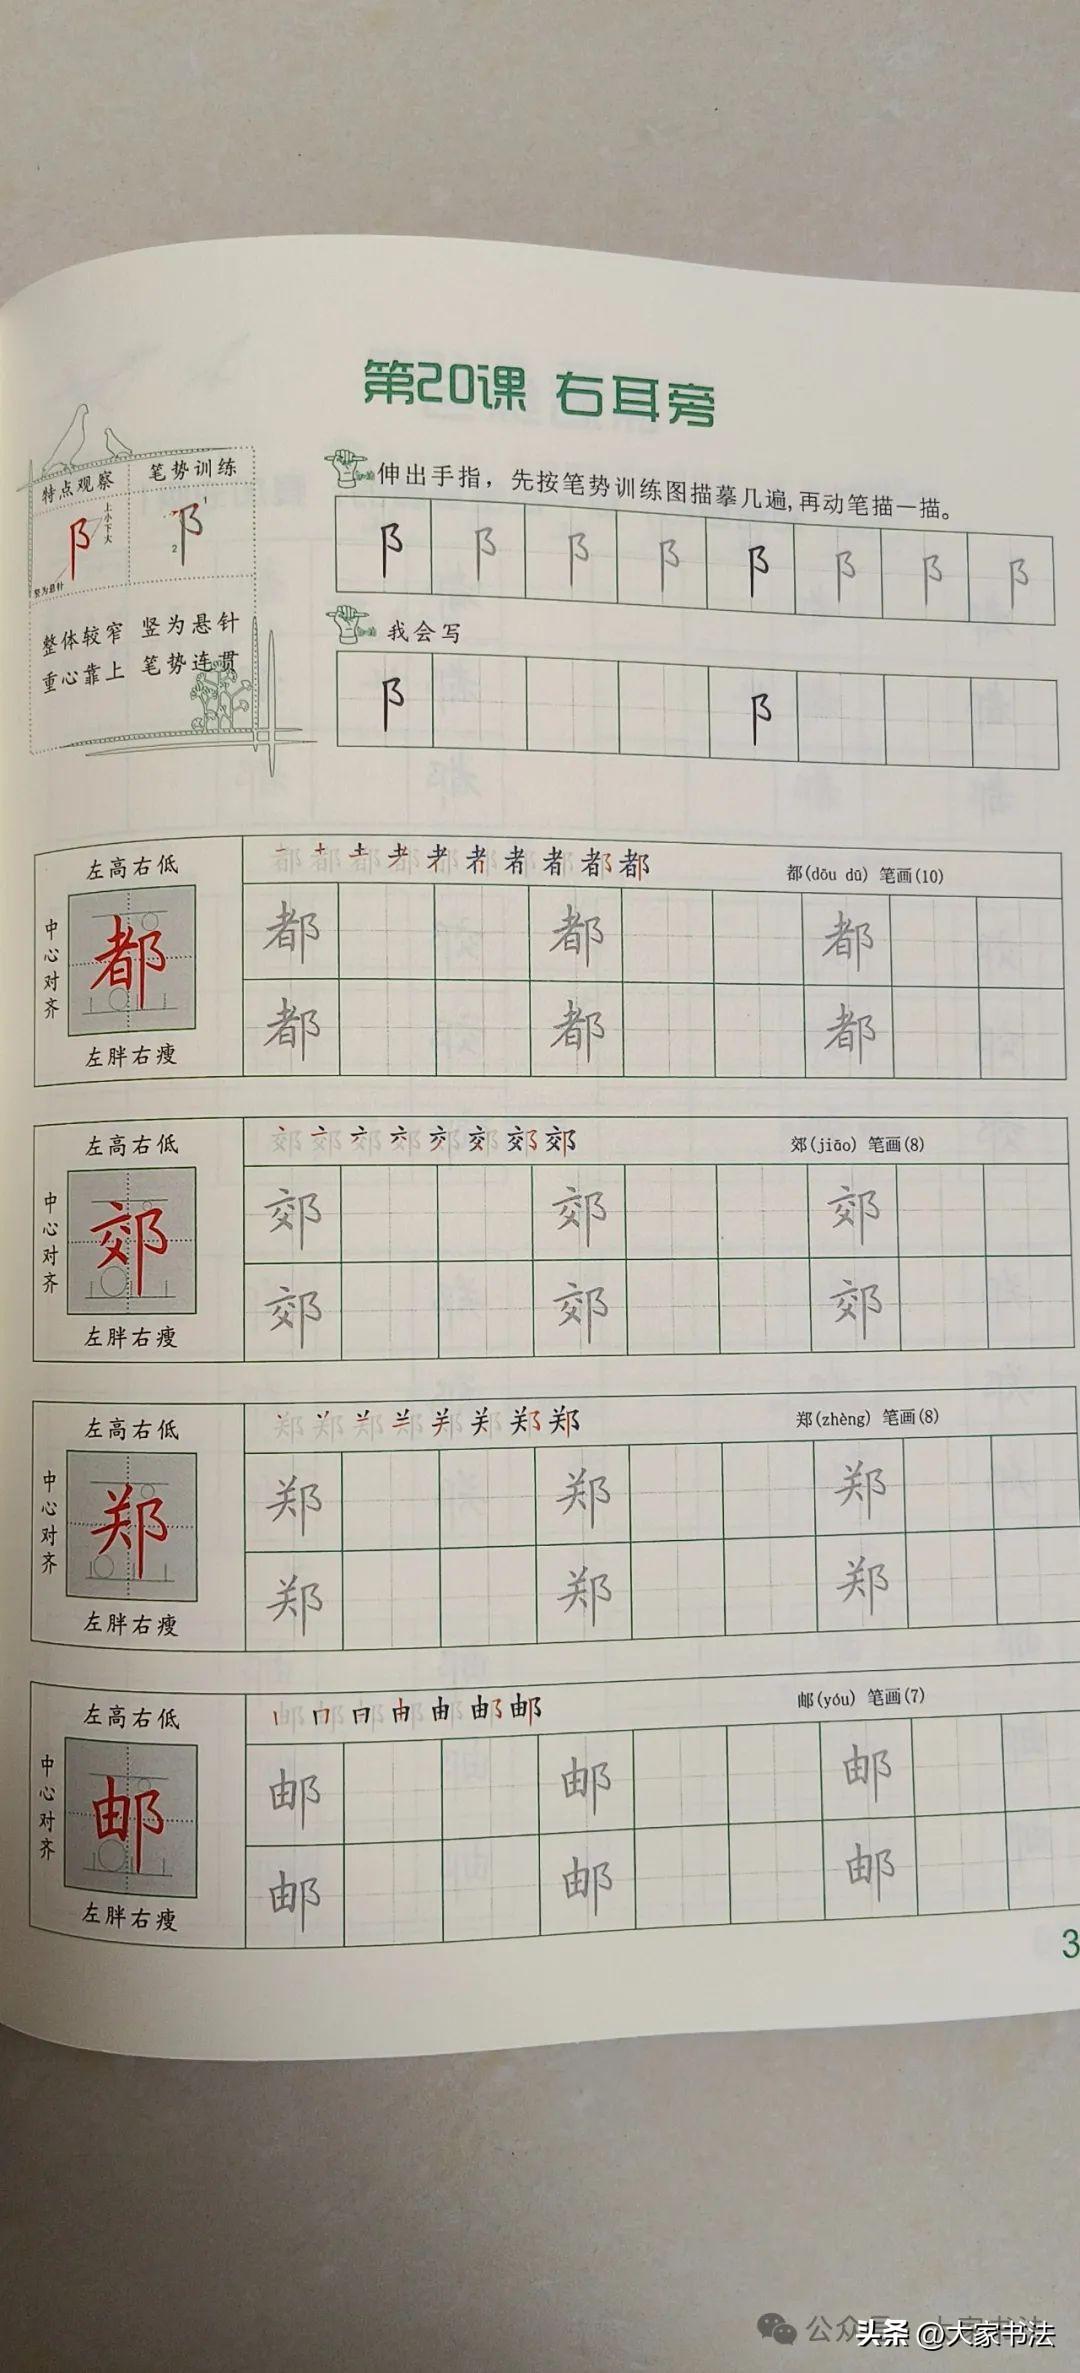 第20课 右耳旁
特点观察 笔势训练
上小下大
竖为悬针
1
2
整体较窄 竖为悬针
重心靠上 笔势连贯
伸出手指，先按笔势训练图描摹几遍,再动笔描一描。
阝 阝 阝 阝 阝 阝 阝 阝
我会写
阝 阝
左高右低
中心对齐
都
左胖右瘦
都(dōu dū) 笔画(10)
都 都 都
都 都 都
左高右低
中心对齐
郊
左胖右瘦
郊(jiāo) 笔画(8)
郊 郊 郊
郊 郊 郊
左高右低
中心对齐
郑
左胖右瘦
郑(zhèng) 笔画(8)
郑 郑 郑
郑 郑 郑
左高右低
中心对齐
邮
左胖右瘦
邮(yóu) 笔画(7)
邮 邮 邮
邮 邮 邮
3
头条 @大家书法